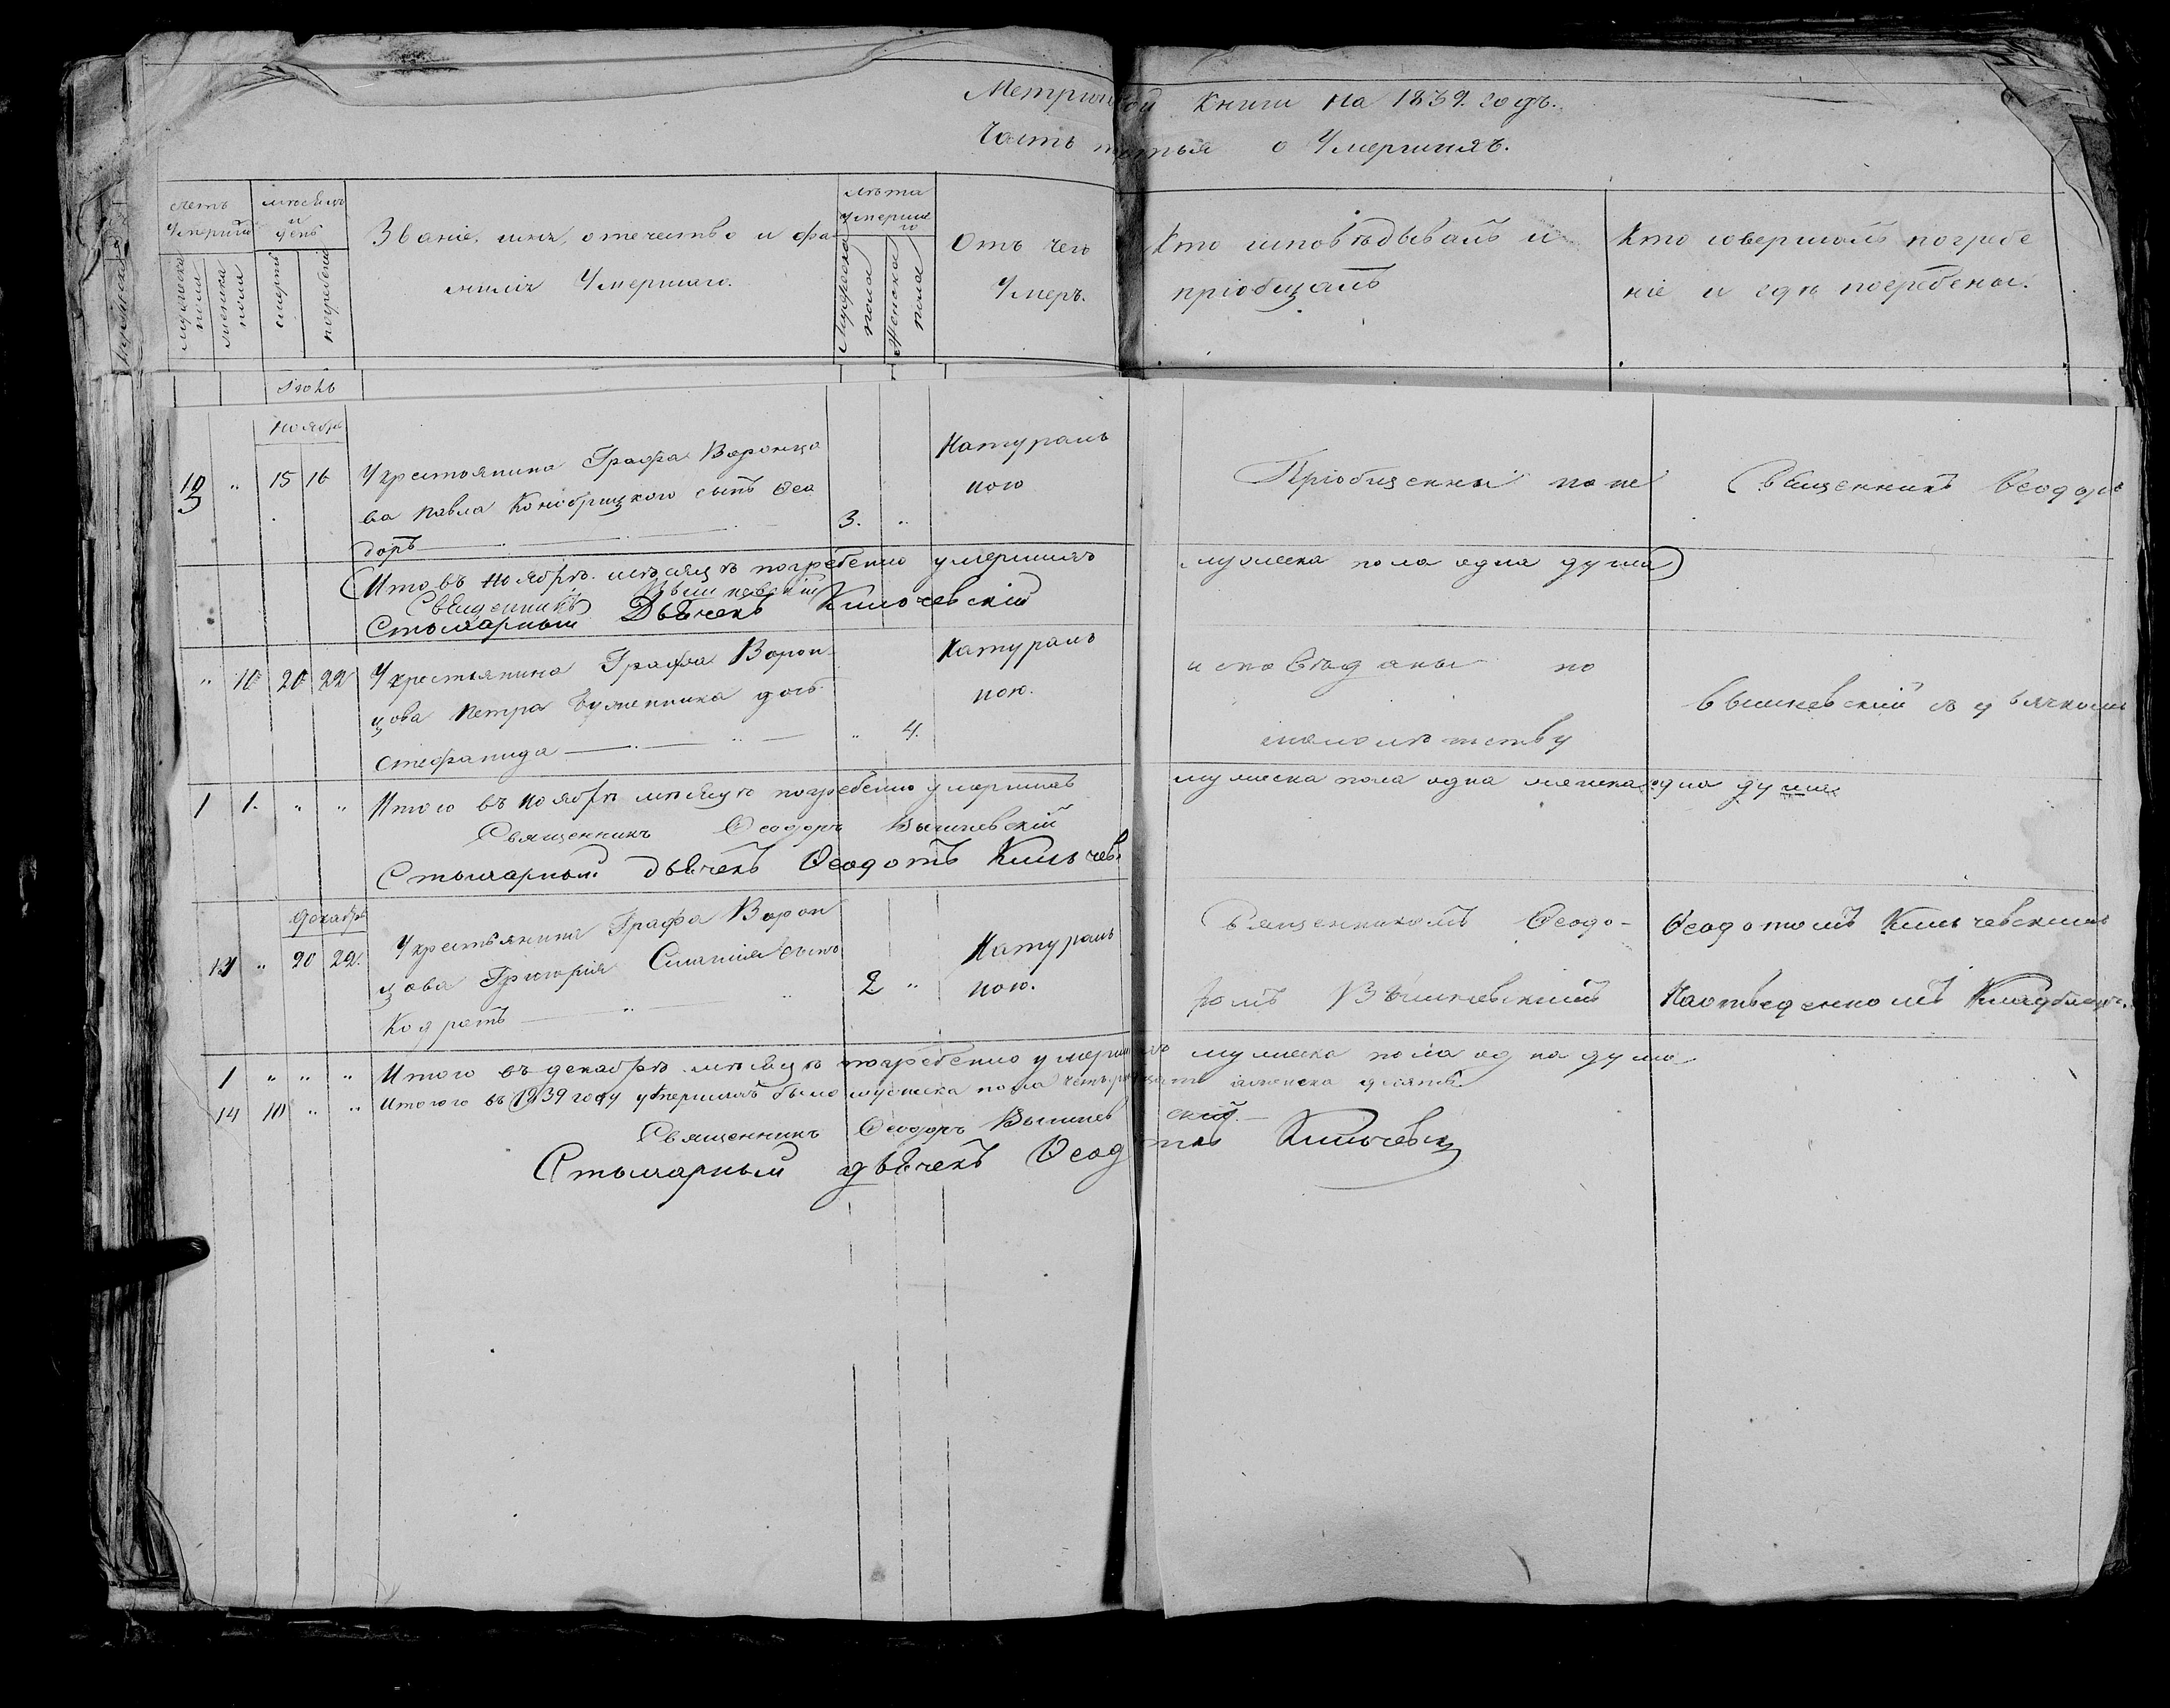 Метрической Книги на 1839 годъ.
Часть третья о Умершихъ.
Счетъ Умершихъ
мужеска пола
женска пола
месяцъ и день
смерти
погребенія
Званіе, имя, отечество и фа
милія Умершаго.
Лѣта умершаго
Мужеска пола
Женска пола
Отъ чего
Умеръ.
Кто исповѣдывалъ и
пріобщалъ
Кто совершалъ погребе
ніе и гдѣ погребены.
Ноябрь
13 " 15 16 У крестьянина Графа Воронцо
ва Павла сынъ Ѳео
доръ 3. "
Натураль
ною
Пріобщенны не
Священникъ Ѳеодоръ
Итого въ Ноябрѣ месяцѣ погребено умершихъ мужеска пола одна душа
Священникъ Вышневскій
Дьячекъ Кильчевскій
" 10 20 22 У крестьянина Графа Ворон
цова Петра дочь
Стефанида " 4.
Натураль
ною.
исповѣданы по
малолетству
Вышневскій съ дьячкомъ
1 1. " " Итого въ Ноябрѣ месяцѣ погребено умершихъ мужеска пола одна женска одна душа
Священникъ Ѳеодоръ Вышневскій
дьячекъ Ѳеодотъ Кильчев
Декабрь
14 " 20 22. У крестьянина Графа Ворон
цова Григорія сынъ
Кодратъ 2 "
Натураль
ною.
Священникомъ Ѳеодо-
ромъ Вышневскимъ
Ѳеодотомъ Кильчевскимъ
На отведенномъ Кладбищѣ.
1 " " " Итого въ декабрѣ месяцѣ погребено умершихъ мужеска пола одна душа
14 10 " " Итого въ 1839 году умершихъ было мужеска пола четырнадцать женска десять.
Священникъ Ѳеодоръ Вышневскій
дьячекъ Ѳеодотъ Кильчевск